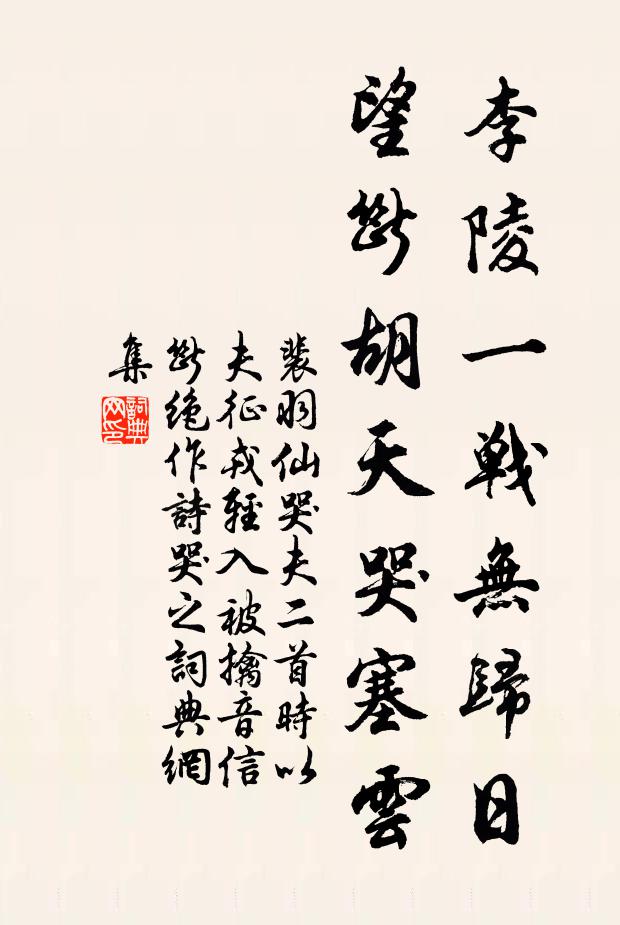 李陵一戰無歸日
望斷胡天哭塞雲
裴羽仙哭夫二首時以
夫征戎輕入被擒音信
斷絕作詩哭之詞典網
集
詞典
网印